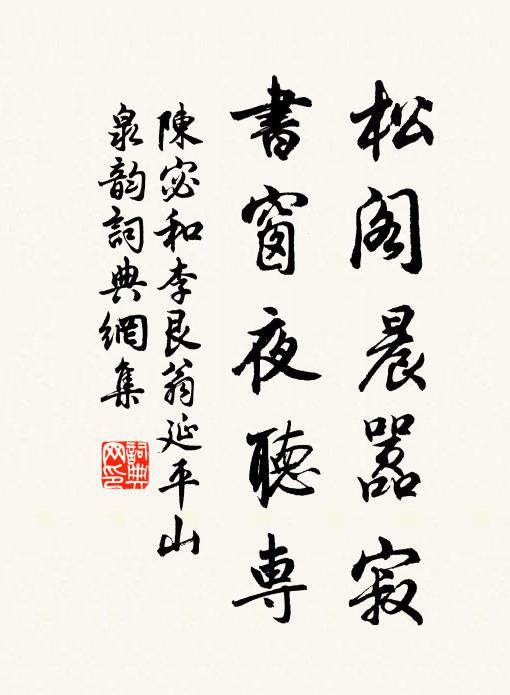 松阁晨嚣寂
書窗夜聽專
陳宓和李艮翁延平山
泉韵詞典網集
詞典網印